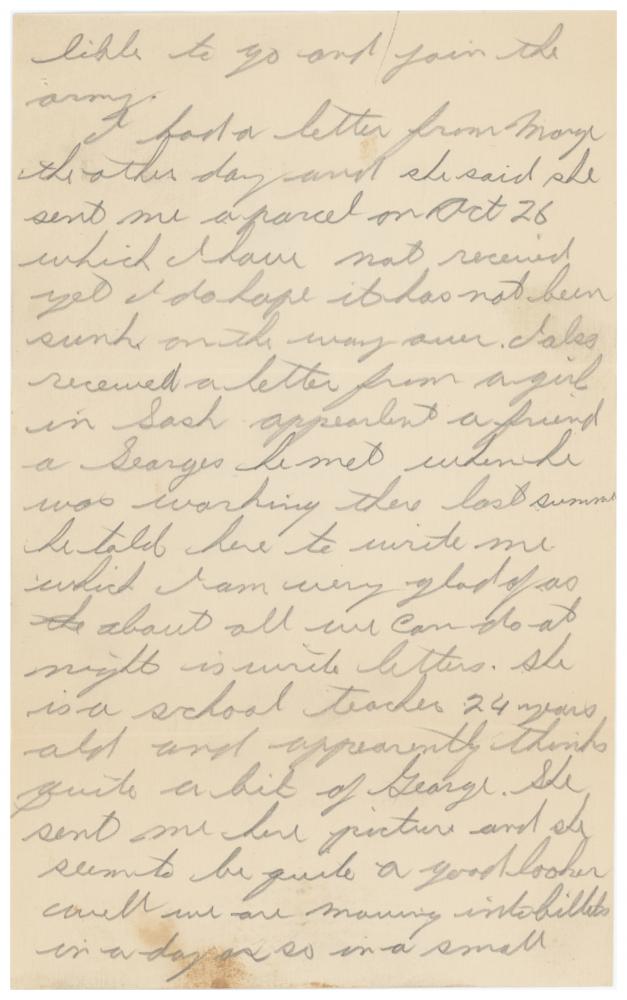 lible to go and join the
army.
I had a letter from Marge
the other day and she said she
sent me a parcel on Oct 26
which I have not received
yet I do hope it has not been
sunk on the way over. I also
received a letter from a girl
in Sask appearlent a friend
a Georges he met when he
was working there last summer
he told here to write me
which I am very glad of as
the about all we can do at
night is write letters. She
is a school teacher 24 years
old and appearently thinks
quite a bit of George. She
sent me here picture and she
seem to be quite a good looker
well we are moving into billets
in a day or so in a small